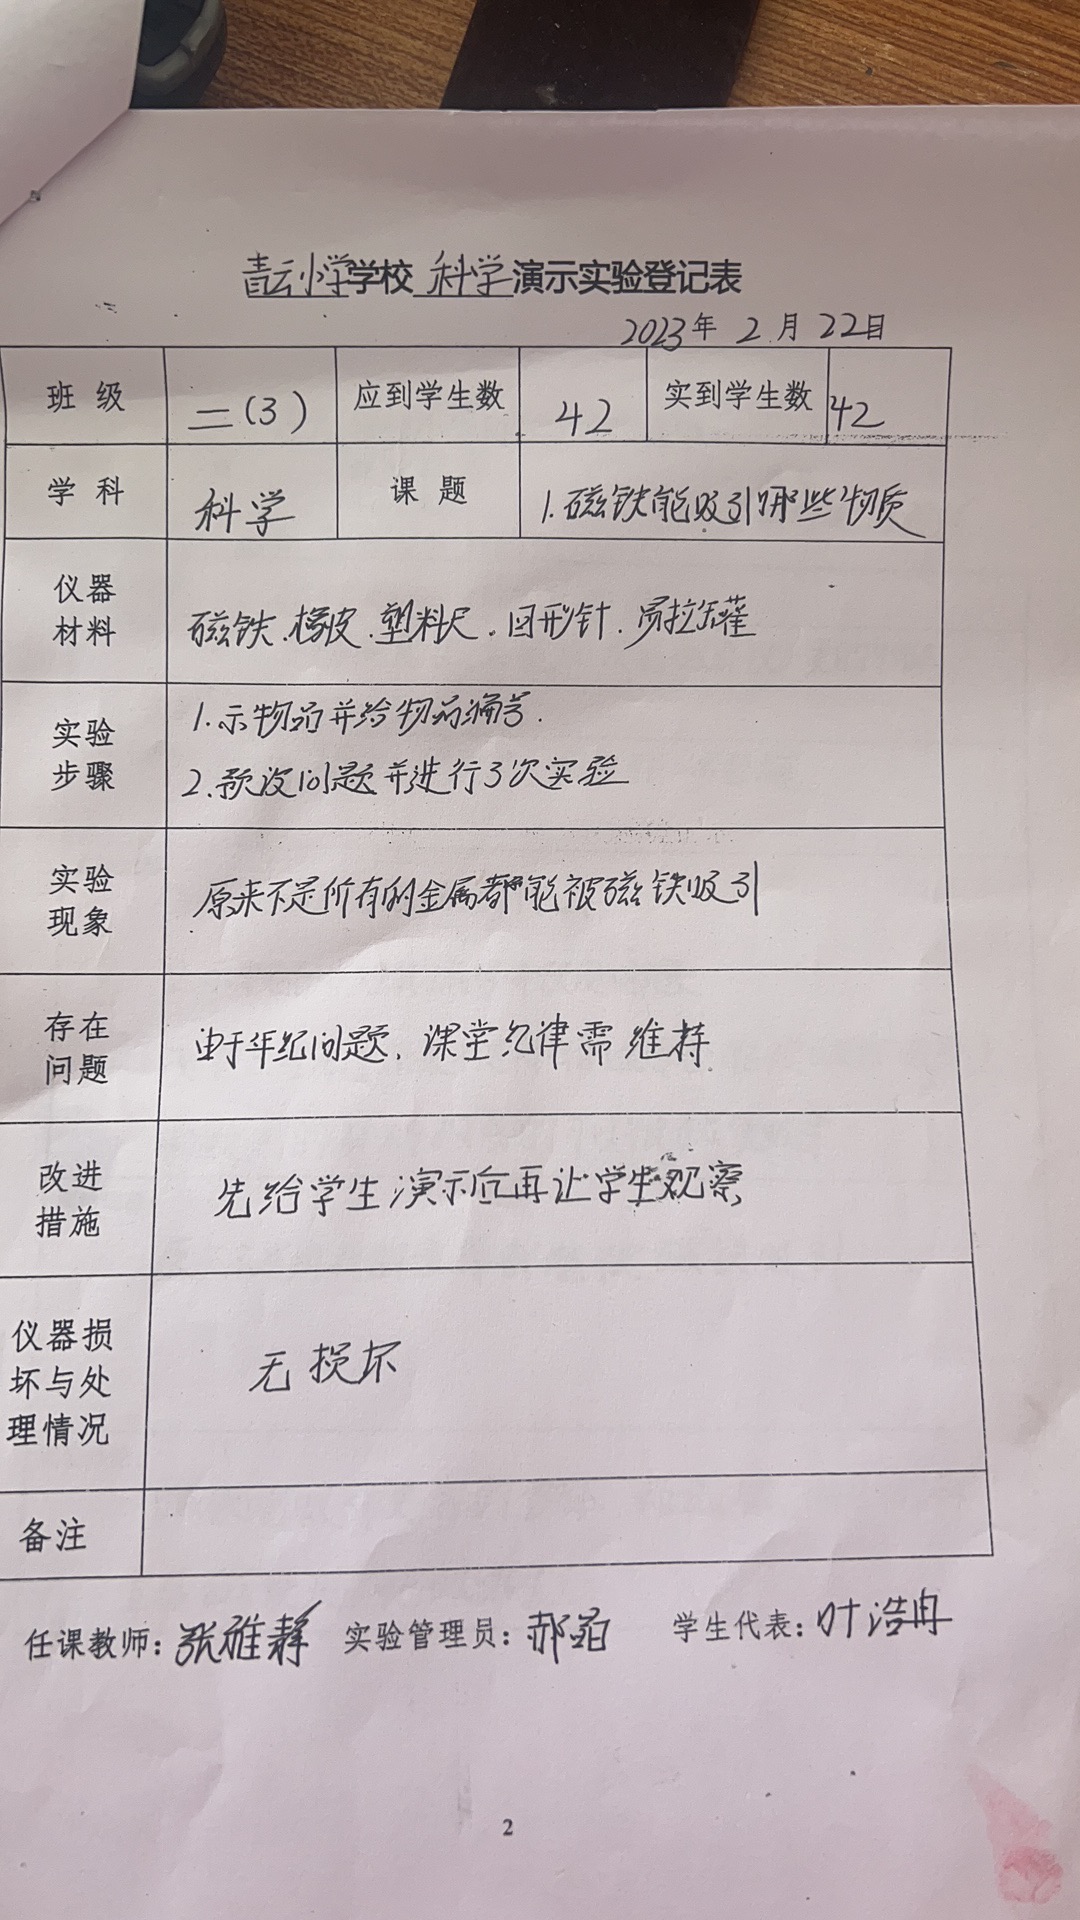 青云小学学校 科学 演示实验登记表
2023年 2月 22日
班级 二(3) 应到学生数 42 实到学生数 42
学科 科学 课题 1.磁铁能吸引哪些物质
仪器
材料
磁铁.橡皮.塑料尺.回形针.易拉罐
实验
步骤
1.示物品并给物品编号.
2.预设问题并进行3次实验
实验
现象
原来不是所有的金属都能被磁铁吸引
存在
问题
由于年纪问题,课堂纪律需维持.
改进
措施
先给学生演示后再让学生观察
仪器损
坏与处
理情况
无损坏
备注
任课教师:张雅静 实验管理员:郝 学生代表:叶浩冉
2